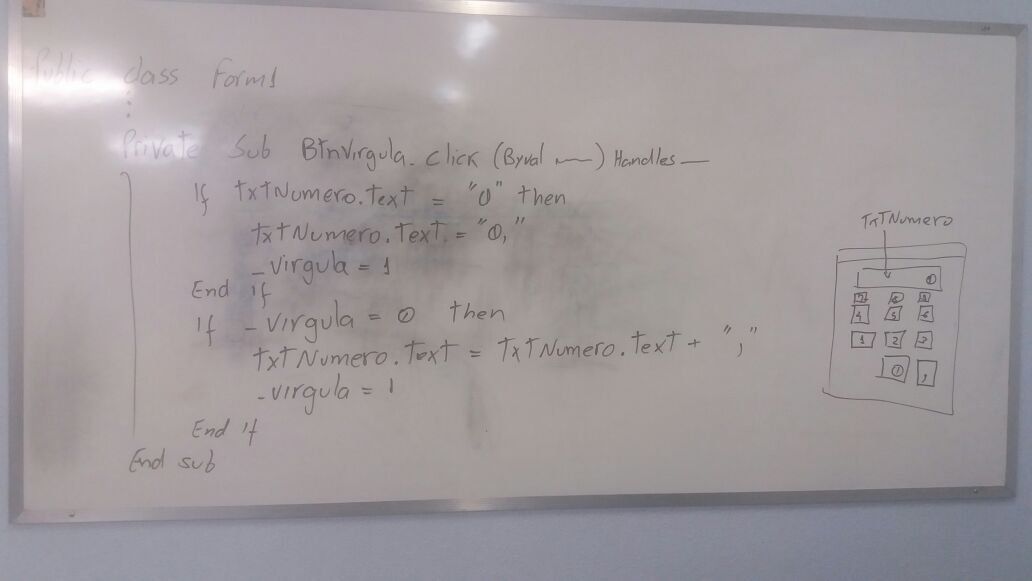 Public class Form1
⋮
Private Sub BtnVirgula.click (Byval ——) Handles —
If txtNumero.Text = "0" then
txtNumero.Text = "0,"
_Virgula = 1
End if
If _Virgula = 0 then
txtNumero.Text = txtNumero.Text + ","
_virgula = 1
End if
End sub
TxtNumero
0
7 8 9
4 5 6
1 2 3
0 ,